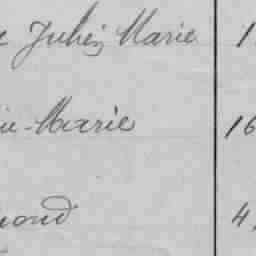 Jules Marie 1
Marie 16
mond 4